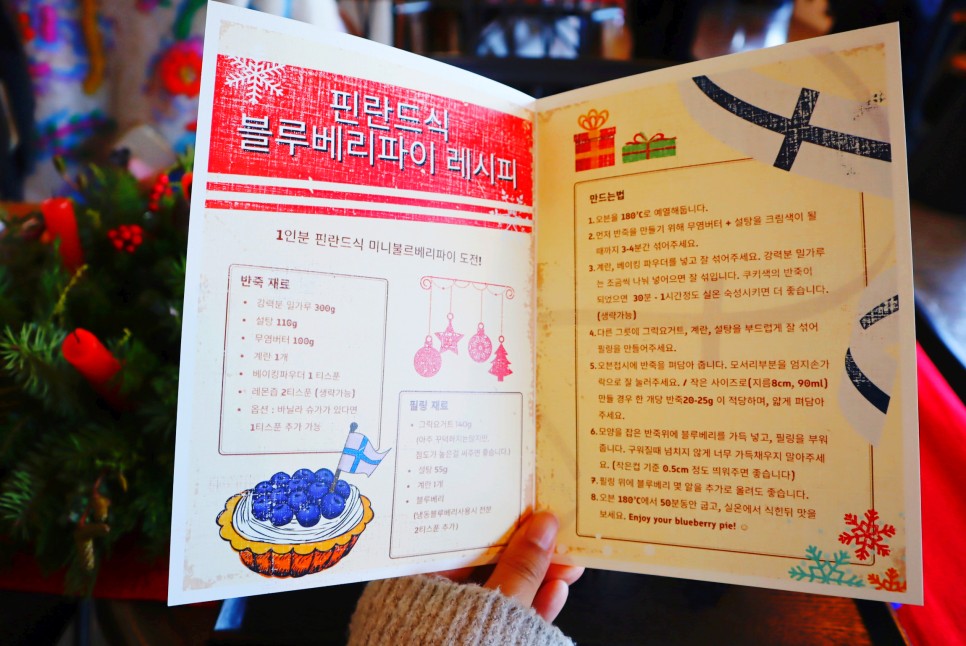 핀란드식
블루베리파이 레시피
1인분 핀란드식 미니블르베리파이 도전!
반죽 재료
• 강력분 밀가루 300g
• 설탕 110g
• 무염버터 100g
• 계란 1개
• 베이킹파우더 1 티스푼
• 레몬즙 2티스푼 (생략가능)
• 옵션 : 바닐라 슈가가 있다면
1티스푼 추가 가능
필링 재료
• 그릭요거트 140g
(아주 꾸덕하지는않지만,
점도가 높은걸 써주면 좋습니다)
• 설탕 55g
• 계란 1개
• 블루베리
(냉동블루베리사용시 전분
2티스푼 추가)
만드는법
1. 오븐을 180℃로 예열해둡니다.
2. 먼저 반죽을 만들기 위해 무염버터 + 설탕을 크림색이 될
때까지 3-4분간 섞어주세요.
3. 계란, 베이킹 파우더를 넣고 잘 섞어주세요. 강력분 밀가루
는 조금씩 나눠 넣어으면 잘 섞입니다. 쿠키색의 반죽이
되었으면 30분 - 1시간정도 실온 숙성시키면 더 좋습니다.
(생략가능)
4. 다른 그릇에 그릭요거트, 계란, 설탕을 부드럽게 잘 섞어
필링을 만들어주세요.
5. 오븐접시에 반죽을 펴담아 줍니다. 모서리부분을 엄지손가
락으로 잘 눌러주세요. / 작은 사이즈로(지름8cm, 90ml)
만들 경우 한 개당 반죽20-25g 이 적당하며, 얇게 펴담아
주세요.
6. 모양을 잡은 반죽위에 블루베리를 가득 넣고, 필링을 부워
줍니다. 구워질때 넘치지 않게 너무 가득채우지 말아주세
요. (작은컵 기준 0.5cm 정도 띄워주면 좋습니다)
7. 필링 위에 블루베리 몇 알을 추가로 올려도 좋습니다.
8. 오븐 180℃에서 50분동안 굽고, 실온에서 식힌뒤 맛을
보세요. Enjoy your blueberry pie! ☺